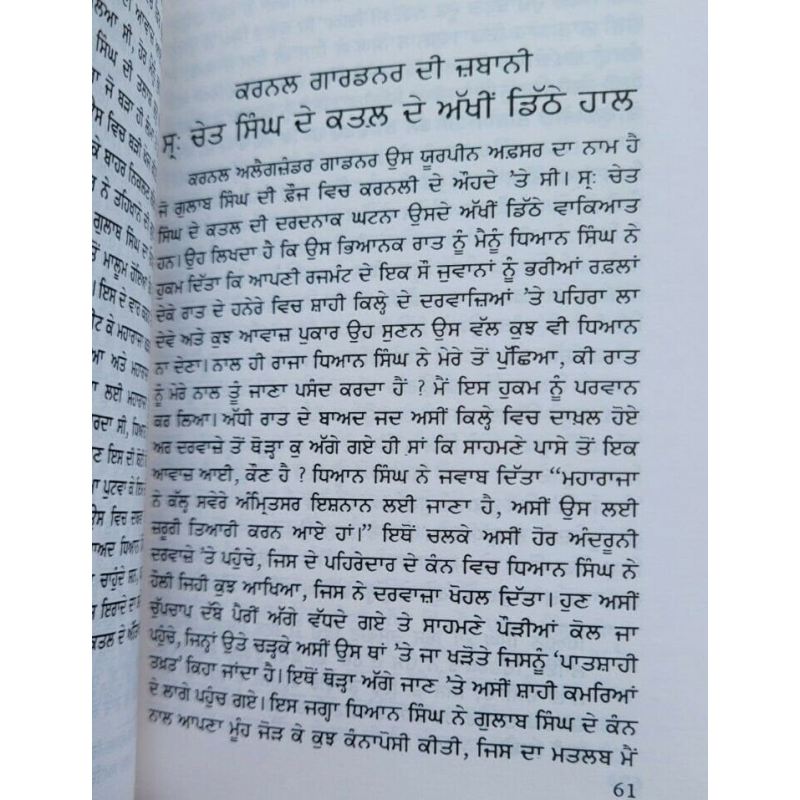 ਕਰਨਲ ਗਾਰਡਨਰ ਦੀ ਜ਼ਬਾਨੀ
ਸ੍ਰ: ਚੇਤ ਸਿੰਘ ਦੇ ਕਤਲ ਦੇ ਅੱਖੀਂ ਡਿੱਠੇ ਹਾਲ
ਕਰਨਲ ਅਲੈਗਜ਼ੰਡਰ ਗਾਡਨਰ ਉਸ ਯੂਰਪੀਨ ਅਫ਼ਸਰ ਦਾ ਨਾਮ ਹੈ
ਜੋ ਗੁਲਾਬ ਸਿੰਘ ਦੀ ਫ਼ੌਜ ਵਿਚ ਕਰਨਲੀ ਦੇ ਔਹਦੇ 'ਤੇ ਸੀ। ਸ੍ਰ: ਚੇਤ
ਸਿੰਘ ਦੇ ਕਤਲ ਦੀ ਦਰਦਨਾਕ ਘਟਨਾ ਉਸਦੇ ਅੱਖੀਂ ਡਿੱਠੇ ਵਾਕਿਆਤ
ਹਨ। ਉਹ ਲਿਖਦਾ ਹੈ ਕਿ ਉਸ ਭਿਆਨਕ ਰਾਤ ਨੂੰ ਮੈਨੂੰ ਧਿਆਨ ਸਿੰਘ ਨੇ
ਹੁਕਮ ਦਿੱਤਾ ਕਿ ਆਪਣੀ ਰਜਮੰਟ ਦੇ ਇਕ ਸੌ ਜੁਵਾਨਾਂ ਨੂੰ ਭਰੀਆਂ ਰਫ਼ਲਾਂ
ਦੇਕੇ ਰਾਤ ਦੇ ਹਨੇਰੇ ਵਿਚ ਸ਼ਾਹੀ ਕਿਲ੍ਹੇ ਦੇ ਦਰਵਾਜ਼ਿਆਂ 'ਤੇ ਪਹਿਰਾ ਲਾ
ਦੇਵੇ ਅਤੇ ਕੁਝ ਆਵਾਜ਼ ਪੁਕਾਰ ਉਹ ਸੁਣਨ ਉਸ ਵੱਲ ਕੁਝ ਵੀ ਧਿਆਨ
ਨਾ ਦੇਣਾ। ਨਾਲ ਹੀ ਰਾਜਾ ਧਿਆਨ ਸਿੰਘ ਨੇ ਮੇਰੇ ਤੋਂ ਪੁੱਛਿਆ, ਕੀ ਰਾਤ
ਨੂੰ ਮੇਰੇ ਨਾਲ ਤੂੰ ਜਾਣਾ ਪਸੰਦ ਕਰਦਾ ਹੈਂ ? ਮੈਂ ਇਸ ਹੁਕਮ ਨੂੰ ਪਰਵਾਨ
ਕਰ ਲਿਆ। ਅੱਧੀ ਰਾਤ ਦੇ ਬਾਅਦ ਜਦ ਅਸੀਂ ਕਿਲ੍ਹੇ ਵਿਚ ਦਾਖ਼ਲ ਹੋਏ
ਅਰ ਦਰਵਾਜ਼ੇ ਤੋਂ ਥੋੜ੍ਹਾ ਕੁ ਅੱਗੇ ਗਏ ਹੀ ਸ਼ਾਂ ਕਿ ਸਾਹਮਣੇ ਪਾਸੇ ਤੋਂ ਇਕ
ਆਵਾਜ਼ ਆਈ, ਕੌਣ ਹੈ ? ਧਿਆਨ ਸਿੰਘ ਨੇ ਜਵਾਬ ਦਿੱਤਾ “ਮਹਾਰਾਜਾ
ਨੇ ਕੱਲ੍ਹ ਸਵੇਰੇ ਅੰਮ੍ਰਿਤਸਰ ਇਸ਼ਨਾਨ ਲਈ ਜਾਣਾ ਹੈ, ਅਸੀਂ ਉਸ ਲਈ
ਜ਼ਰੂਰੀ ਤਿਆਰੀ ਕਰਨ ਆਏ ਹਾਂ।” ਇਥੋਂ ਚਲਕੇ ਅਸੀਂ ਹੋਰ ਅੰਦਰੂਨੀ
ਦਰਵਾਜ਼ੇ 'ਤੇ ਪਹੁੰਚੇ, ਜਿਸ ਦੇ ਪਹਿਰੇਦਾਰ ਦੇ ਕੰਨ ਵਿਚ ਧਿਆਨ ਸਿੰਘ ਨੇ
ਹੌਲੀ ਜਿਹੀ ਕੁਝ ਆਖਿਆ, ਜਿਸ ਨੇ ਦਰਵਾਜ਼ਾ ਖੋਹਲ ਦਿੱਤਾ। ਹੁਣ ਅਸੀਂ
ਚੁੱਪਚਾਪ ਦੱਬੇ ਪੈਰੀਂ ਅੱਗੇ ਵੱਧਦੇ ਗਏ ਤੇ ਸਾਹਮਣੇ ਪੌੜੀਆਂ ਕੋਲ ਜਾ
ਪਹੁੰਚੇ, ਜਿਨ੍ਹਾਂ ਉਤੇ ਚੜ੍ਹਕੇ ਅਸੀਂ ਉਸ ਥਾਂ 'ਤੇ ਜਾ ਖੜੋਤੇ ਜਿਸਨੂੰ 'ਪਾਤਸ਼ਾਹੀ
ਤਖ਼ਤ' ਕਿਹਾ ਜਾਂਦਾ ਹੈ। ਇਥੋਂ ਥੋੜ੍ਹਾ ਅੱਗੇ ਜਾਣ 'ਤੇ ਅਸੀਂ ਸ਼ਾਹੀ ਕਮਰਿਆਂ
ਦੇ ਲਾਗੇ ਪਹੁੰਚ ਗਏ। ਇਸ ਜਗ੍ਹਾ ਧਿਆਨ ਸਿੰਘ ਨੇ ਗੁਲਾਬ ਸਿੰਘ ਦੇ ਕੰਨ
ਨਾਲ ਆਪਣਾ ਮੂੰਹ ਜੋੜ ਕੇ ਕੁਝ ਕੰਨਾਪੋਸੀ ਕੀਤੀ, ਜਿਸ ਦਾ ਮਤਲਬ ਮੈਂ
61